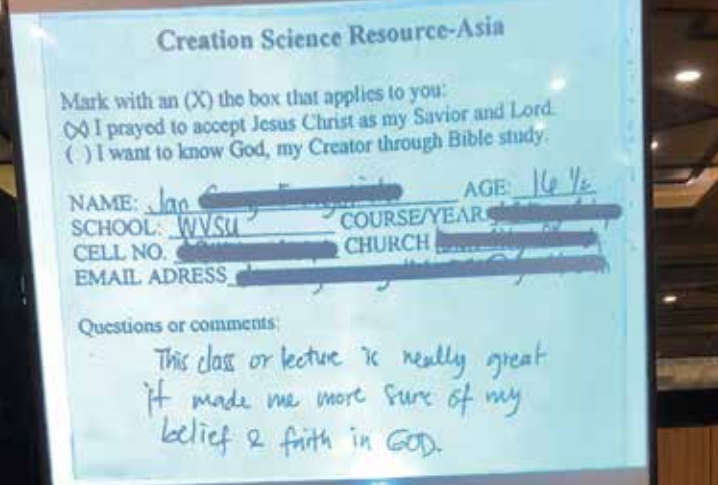 Creation Science Resource-Asia
Mark with an (X) the box that applies to you:
(X) I prayed to accept Jesus Christ as my Savior and Lord.
( ) I want to know God, my Creator through Bible study.
NAME: Jan AGE: 16 ½
SCHOOL: WVSU COURSE/YEAR
CELL NO. CHURCH
EMAIL ADRESS
Questions or comments:
This class or lecture is really great
it made me more sure of my
belief & faith in GOD.